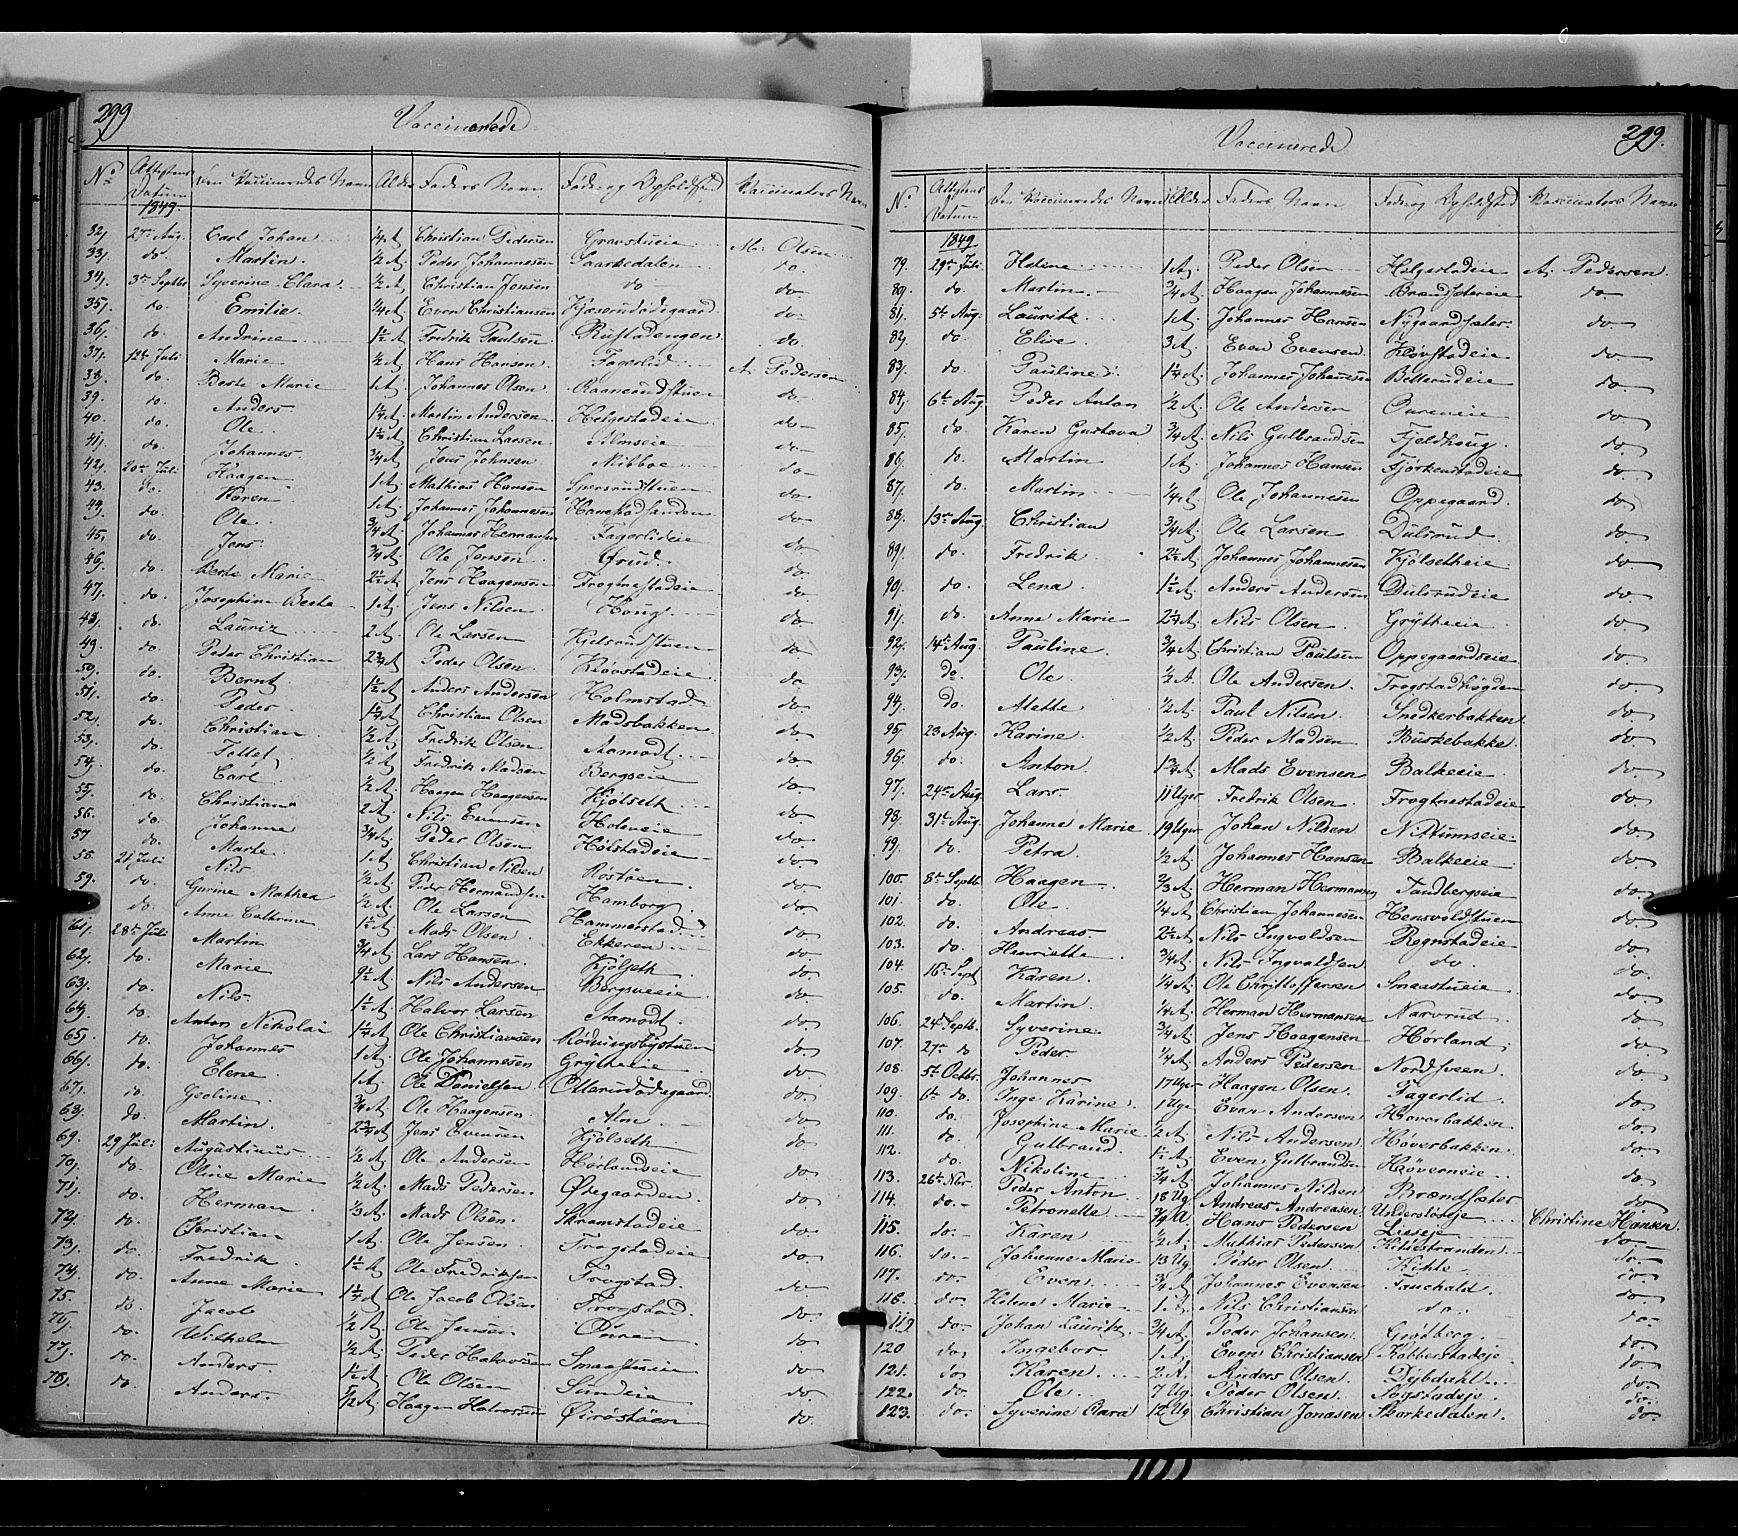 299
Vaccinerede
No. Attestens Datum Den Vaccineredes Navn Alder Faders Navn Føde og Opholdsted Vaccinators Navn
1849.
32, 27de Aug. Carl Johan ¼A Christian Pedersen Gravstueie M. Olsen
33, do. Martin. ½A Peder Johannesen Saarkedalen do.
34, 3de Septbr Syverine Clara ½A Christian Jonsen do do.
35, do. Emilie. ¼A Even Christiansen do.
36, do. Andrine 1½A Fredrik Paulsen Rustadengen do
37, 12te Juli Marie ½A Hans Hansen Fagerlid A. Pedersen
38, do. Berte Marie 1A. Johannes Olsen do.
39. do. Anders 1¼A Martin Andersen Helgestadeie do
40. do. Ole 1½A Christian Larsen Almseie do
41, do. Johannes ¾A Jens Johnsen do
42, 20de Juli Haagen 1A. Mathias Hansen do
43. do. Karen 1A. Johannes Johannesen do
44, do. Ole. ¾A. Johannes Hermansen Fagerlideie do
45. do. Jens. ¾A. Ole Jensen Grud. do.
46, do. Berte Marie 2½A Jens Haagensen Frogtnestadeie do
47, do. Josephine Berte 1A. Jens Nilsen Houg. do
48, do. Lauriz 2A. Ole Larsen Kjelsrudstuen do
49. do. Peder Christian 2¾A Peder Olsen Kløvstadeie do
50. do. Bernt 1½A Anders Andersen Holmstad do.
51, do. Peder 1¾A Christian Olsen Madsbakken do
52, do. Christian ½A Fredrik Olsen Aamodt do
53, do. Tollef, ½A Fredrik Madsen Bergseie do
54, do. Carl ½A Haagen Haagensen Kjølseth do
55, do. Christian 2A. Nils Evensen Holeneie do
56. do. Johanne ¾A Peder Olsen Holstadeie do
57 do. Marte. 1A. Christian Nilsen Rostøen do
58. 21 Juli Nils ½A Peder Hermansen Hamborg do
59. do. Gurine Mathea ½A Ole Larsen Hammerstad do.
do. Anne Cathrine 1½A Mads Olsen Ekkeren do
61, 28de Juli Martin ¾A Lars Hansen. Kjølseth do
62, do. Marie 9½A Nils Andersen Bergsveeie do
63, do. Nils. 1½A Halvor Larsen Aamodt. do
64, do. Anton Nikolai 1¼A Ole Christiansen Rødningsbystuen do.
65. do. Johannes 1A. Ole Johannesen Grytheeie do
66, do. Elene. 1A. Ole Danielsen do
67, do. Geoline. ¾A Ole Haagensen. Alm do
68, do. Martin. 2¾A Jens Evensen Kjølseth do
69. 29 Juli Augustinus ½A Ole Andersen Hørlandseie do
70, do. Oline Marie ½A. Mads Pedersen Ødegaarden do
71, do. Herman. ⅓A. Mads Olsen. Skramstadeie do
72, do. Christian 1A. Ole Jensen Frogstadeie do
73, do. Fredrik 1½A Ole Fredriksen Frogstad. do
74, do. Anne Marie 1¼A Ole Jacob Olsen Frogstad. do
75. do. Jacob ½A Ole Jensen do
76, do. Wilhelm ½A Peder Halvorsen Smaastueie do
77, do. Anders. 1½A Ole Olsen Sundeie do
78, do. Anders. ½A Haagen Halvorsen do.
299.
Vaccinerede
No. Attestens Datum Den Vaccineredes Navn Alder Faders Navn Føde og Opholdsted Vaccinators Navn
1849
79. 29de Juli Heline 1A. Peder Olsen Helgestadeie A. Pedersen.
80. do. Martin. ¾A Haagen Johannesen Brændsætereie do
81, 5te Aug: Lauritz 1A Johannes Hansen Nygaardsæter do
82, do. Elise 3A Even Evensen. Kløvstadeie do
83, do. Pauline. 1¼A Johannes Johannesen Betterudeie do
84, 6te Aug: Peder Anton ½A Ole Andersen Oureneie do
85, do. Karen Gustava ¾A. Nils Gulbrandsen Fjeldhoug. do
86, do. Martin 1A. Johannes Hansen do
87, do. Martin ¼A. Ole Johannesen Oppegaard. do
88, 13de Aug: Christian ¾A. Ole Larsen Dulsrud. do
89, do. Fredrik 2½A. Johannes Johannesen Kjølsetheie do
90, do. Lena 1½A. Anders Andersen Dulsrudeie do
91, do. Anne Marie 2¾A Nils Olsen. Grytheeie do
92, 14de Aug: Pauline. ¾A. Christian Paulsen Oppegaardseie do
93, do. Ole. ½A Ole Andersen. Frogstadhøgden do.
94, do. Alette ½A. Paul Nilsen. Snedkerbakken do
95, 23 Aug: Karine ½A Peder Madsen Buskebakke. do
96, do. Anton 1¾A. Mads Evensen Balkeeie do
97. 24de Aug: Lars 11 Uger Fredrik Olsen Frogtnestadeie do
98, 31te Aug. Johanne Marie 19 Uger Johan Nilsen Nittumseie do
99, do. Petra. ½A Johannes Hansen Balkeeie do
100. 8de Septb. Haagen ⅔A. Herman Hermansen Sandbergseie do
101. do. Ole. ¼A Christian Johannesen Hensvoldstuen do
102. do. Andreas 2½A Nils Ingvoldsen Rognstadeie do
103. do. Hanriette ¾A. Nils Ingvaldsen do. do.
104. 16de Sept. Karen ¼A. Ole Christoffersen Smaastueie do
105. do. Martin ¼A. Herman Hermansen Narvrud do
106. 24de Septb. Syverine ¾A. Jens Haagensen Hørland do
107. 27de do Peder ¼A. Anders Pedersen Nordsveen do
108. 5te Octbr. Johannes 17 Uger Haagen Olsen. Fagerlid do
109. 6te do. Inge Karine. 1 Uge Even Andersen Høverbakken do
110. do. Josephine Marie ½A Nils Andersen Høverbakken do
111. do. Gulbrand. 1½A. Even Gulbrandsen Høverneie do
112. do. Nikoline ¾A. Johannes Nilsen Brændsæter do
113. 26de Nov. Peder Anton 18 Ug. Andreas Andreasen Christine Hansen.
114. do. Petronelle ¾A Hans Pedersen Lieseje do.
115. do. Karen ½A. Mathias Pedersen Kihlestranden do.
116. do. Johanne Marie 13 Ug. Peder Olsen Kihle do.
117. do. Even ¾A. Johannes Evensen Fauchald do.
118. do. Helene Marie 1A. Nils Christiansen do. do.
119 do. Johan Lauritz ¾A. Peder Johansen Grøtberg. do.
120 do. Ingebor. 1A. Even Christiansen Kobberstadeje do
121. do. Karen 2A. Anders Olsen Dybdahl do.
122. do. Ole. 7 Ug. Peder Olsen. Sogstadeje do.
123. do. Syverine Clara 12 Ug. Christian Jonasen Storkedalen. do.